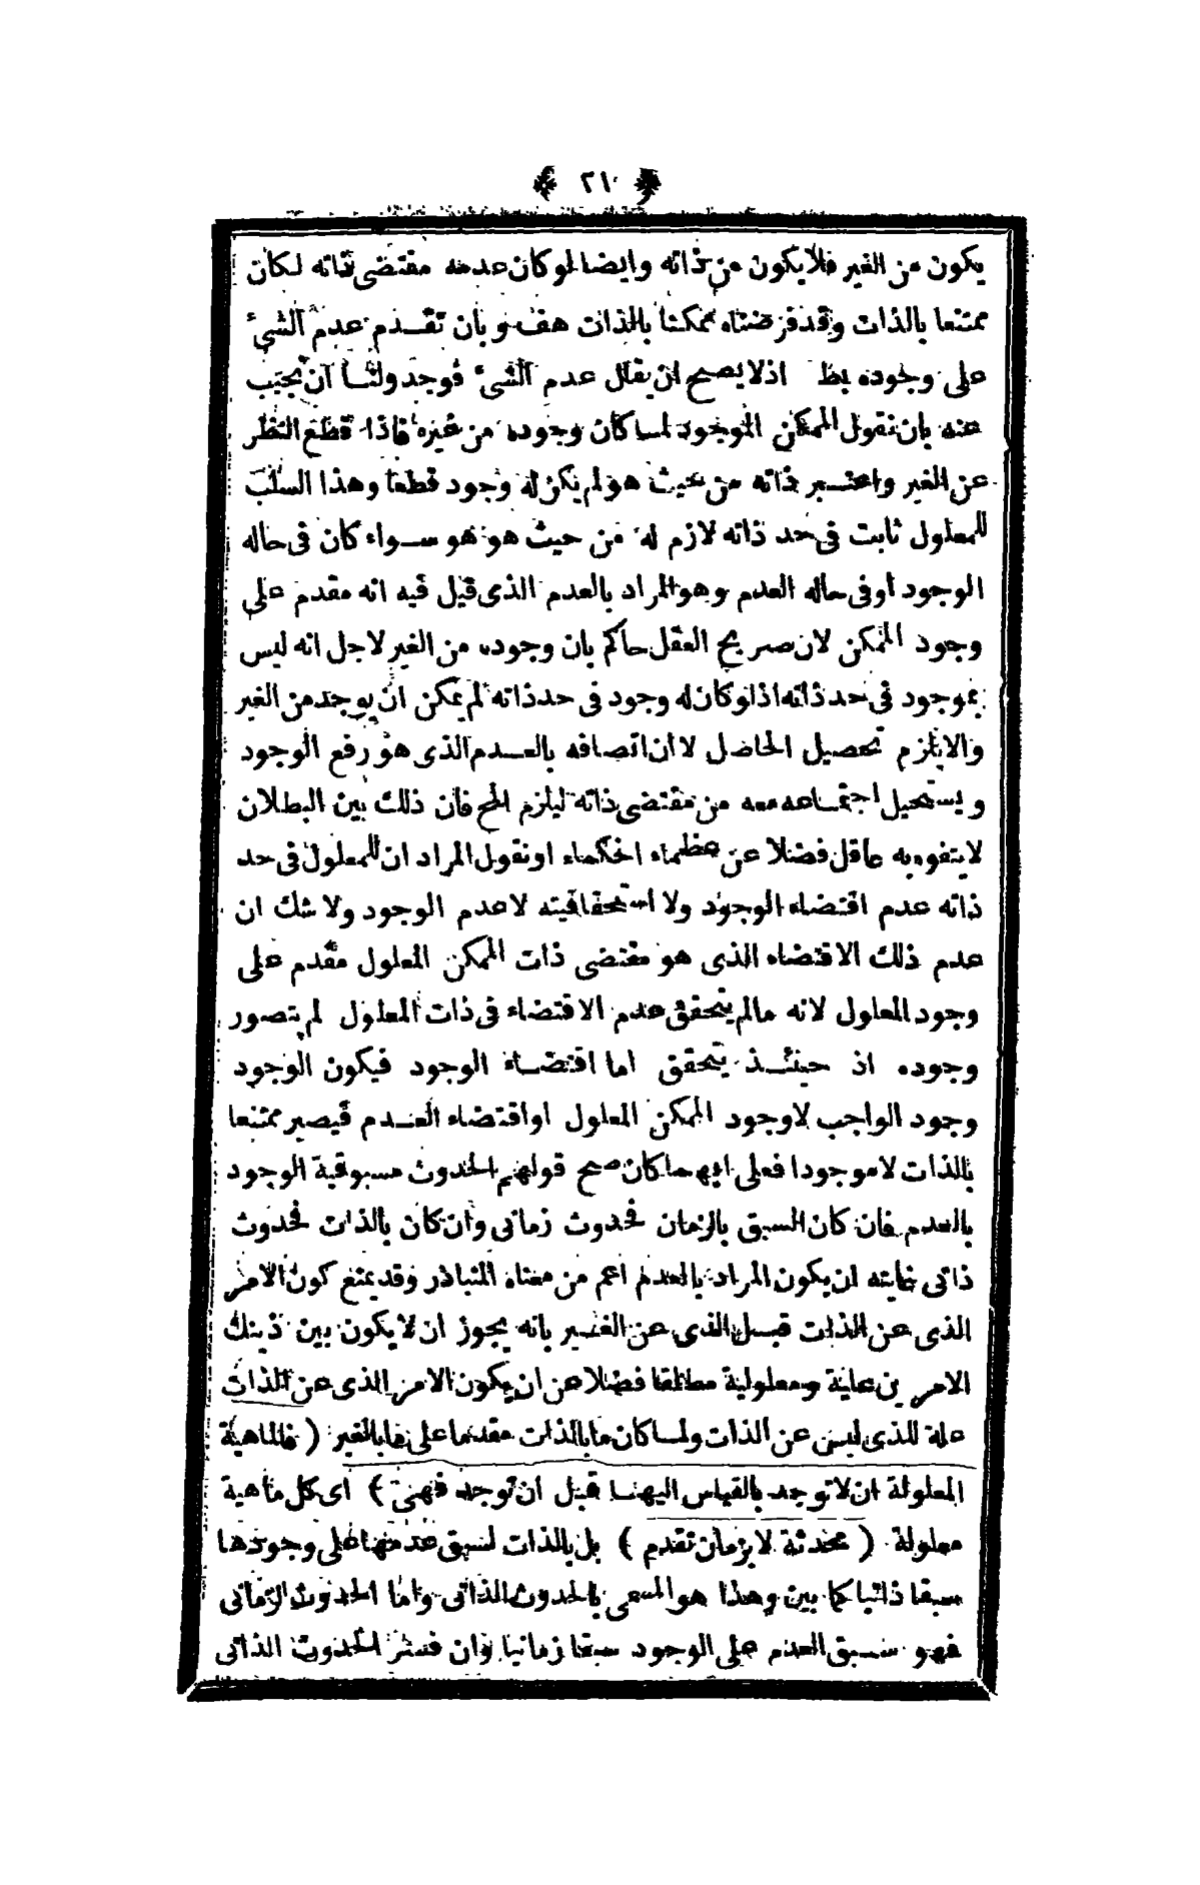 ﴿ ٢١ ﴾
يكون من الغير فلا يكون من ذاته وايضا لو كان عدمه مقتضى ذاته لكان
ممتنعا بالذات وقد فرضناه ممكنا بالذات هف وبان تقدم عدم الشئ
على وجوده بط اذ لا يصح ان يقال عدم الشئ فوجد ولنا ان نجيب
عنه بان نقول الممكن الموجود لما كان وجوده من غيره فاذا قطع النظر
عن الغير واعتبر ذاته من حيث هو لم يكن له وجود قطعا وهذا السلب
للمعلول ثابت فى حد ذاته لازم له من حيث هو هو سواء كان فى حاله
الوجود او فى حاله العدم وهو المراد بالعدم الذى قيل فيه انه مقدم على
وجود الممكن لان صريح العقل حاكم بان وجوده من الغير لاجل انه ليس
بموجود فى حد ذاته اذ لو كان له وجود فى حد ذاته لم يمكن ان يوجد من الغير
والا يلزم تحصيل الحاصل لا ان اتصافه بالعدم الذى هو رفع الوجود
ويستحيل اجتماعه معه من مقتضى ذاته ليلزم المح فان ذلك بين البطلان
لا يتفوه به عاقل فضلا عن عظماء الحكماء او نقول المراد ان للمعلول فى حد
ذاته عدم اقتضاء الوجود ولا استحقاقيته لا عدم الوجود ولا شك ان
عدم ذلك الاقتضاء الذى هو مقتضى ذات الممكن المعلول مقدم على
وجود المعلول لانه ما لم يتحقق عدم الاقتضاء فى ذات المعلول لم يتصور
وجوده اذ حينئذ يتحقق اما اقتضاء الوجود فيكون الوجود
وجود الواجب لا وجود الممكن المعلول او اقتضاء العدم فيصير ممتنعا
بالذات لا موجودا فعلى ايهما كان صح قولهم الحدوث مسبوقية الوجود
بالعدم فان كان السبق بالزمان فحدوث زمانى وان كان بالذات فحدوث
ذاتى غايته ان يكون المراد بالعدم اعم من معناه المتبادر وقد يمنع كون الامر
الذى عن الذات قبل الذى عن الغير بانه يجوز ان لا يكون بين ذينك
الامرين علية ومعلولية مطلقا فضلا عن ان يكون الامر الذى عن الذات
علة للذى ليس عن الذات ولما كان ما بالذات مقدما على ما بالغير ( فالماهية
المعلولة ان لا توجد بالقياس اليها قبل ان توجد فهى ) اى كل ماهية
معلولة ( محدثة لا بزمان تقدم ) بل بالذات لسبق عدمها على وجودها
سبقا ذاتيا كما بين وهذا هو المسمى بالحدوث الذاتى واما الحدوث الزمانى
فهو سبق العدم على الوجود سبقا زمانيا وان فسر الحدوث الذاتى